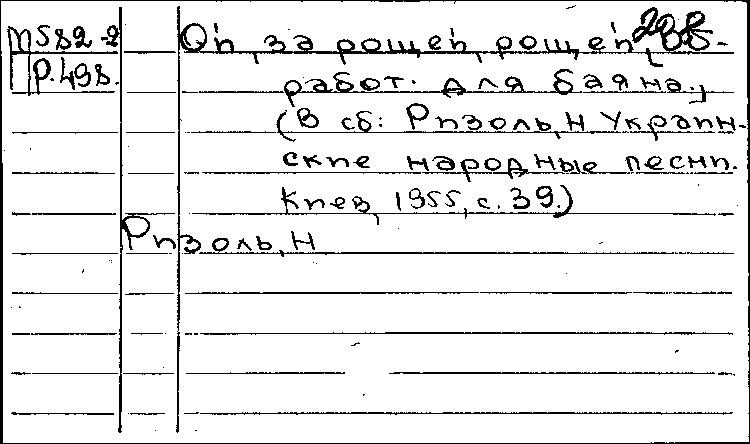 М582-2
Р.498.
Ой, за рощей, рощей,
работ. для баяна.
(В сб: Ризоль, Н Украин-
ские народные песни.
Киев, 1955, с. 39.)
Ризоль, Н